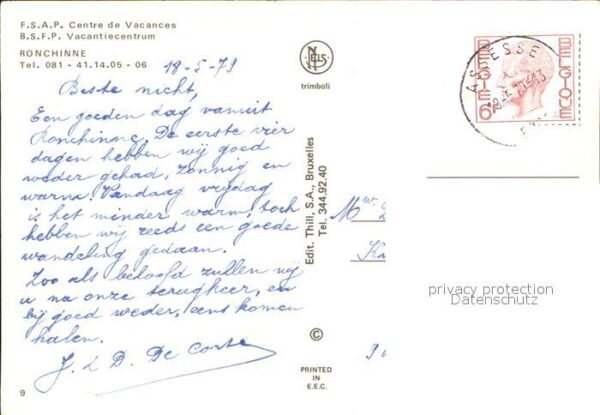 F.S.A.P. Centre de Vacances
B.S.F.P. Vacantiecentrum
RONCHINNE
Tel. 081 - 41.14.05 - 06
18-5-79
Beste nicht,
Een goeden dag vanuit
Ronchinne. De eerste vier
dagen hebben wij goed
weder gehad, zonnig en
warm. Vandaag vrijdag
is het minder warm, toch
hebben wij reeds een goede
wandeling gedaan.
Zoo als beloofd zullen wij
u na onze terugkeer, en
bij goed weder, eens komen
halen.
J. & D. De Coste
9
NELS
trimboli
Edit. Thill, S.A., Bruxelles
Tel. 344.92.40
©
PRINTED
IN
E.E.C.
BELGIE 6
BELGIQUE
ASSESSE
Mw
privacy protection
Datenschutz